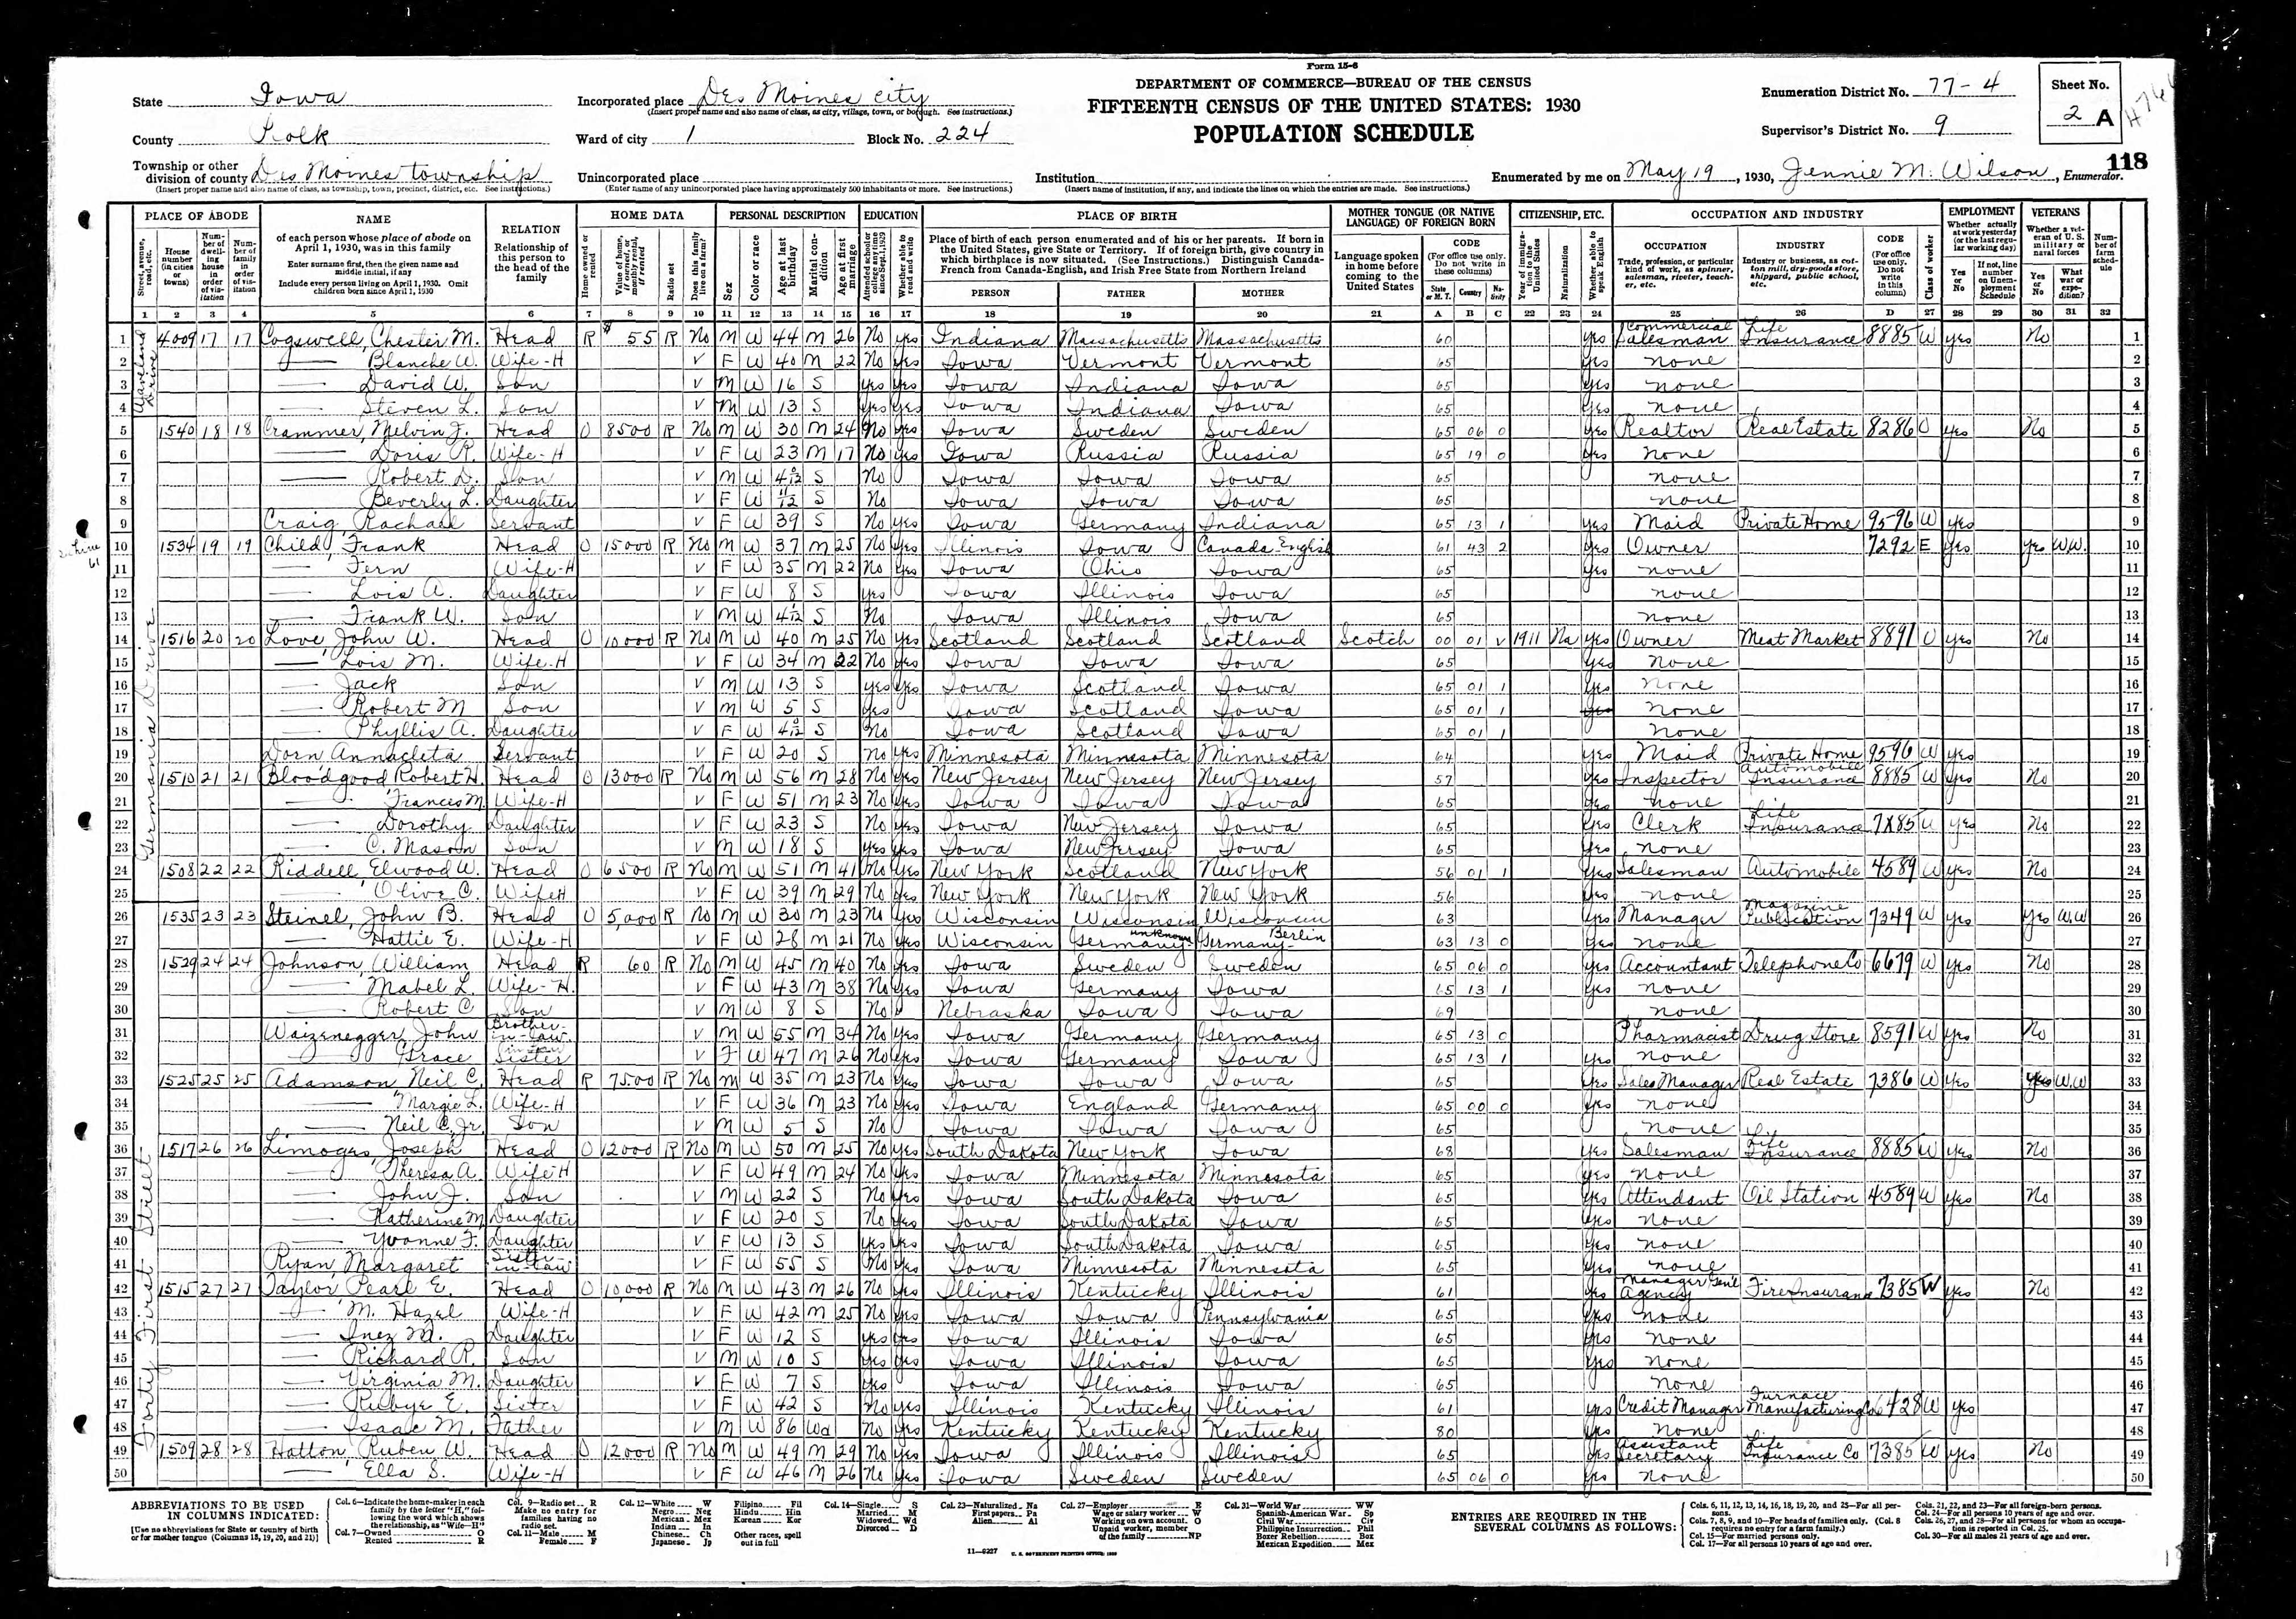 Form 15-6
DEPARTMENT OF COMMERCE—BUREAU OF THE CENSUS
FIFTEENTH CENSUS OF THE UNITED STATES: 1930
POPULATION SCHEDULE
State Iowa
County Polk
Township or other division of county Des Moines township
(Insert proper name and also name of class, as township, town, precinct, district, etc. See instructions.)
Incorporated place Des Moines city
(Insert proper name and also name of class, as city, village, town, or borough. See instructions.)
Ward of city 1 Block No. 224
Unincorporated place
(Enter name of any unincorporated place having approximately 500 inhabitants or more. See instructions.)
Institution
(Insert name of institution, if any, and indicate the lines on which the entries are made. See instructions.)
Enumeration District No. 77-4
Supervisor's District No. 9
Sheet No. 2 A
118
Enumerated by me on May 19, 1930, Jennie M. Wilson, Enumerator.
PLACE OF ABODE NAME RELATION HOME DATA PERSONAL DESCRIPTION EDUCATION PLACE OF BIRTH MOTHER TONGUE (OR NATIVE LANGUAGE) OF FOREIGN BORN CITIZENSHIP, ETC. OCCUPATION AND INDUSTRY EMPLOYMENT VETERANS
PERSON FATHER MOTHER
1 4009 17 17 Cogswell, Chester M. Head R $55 R No M W 44 M 26 No yes Indiana Massachusetts Massachusetts 60 yes Commercial Salesman Life Insurance 8885 W yes No 1
2 Blanche W. Wife-H V F W 40 M 22 No yes Iowa Vermont Vermont 65 yes none 2
3 David W. Son V M W 16 S yes yes Iowa Indiana Iowa 65 yes none 3
4 Steven L. Son V M W 13 S yes yes Iowa Indiana Iowa 65 yes none 4
5 1540 18 18 Crammer, Melvin J. Head O 8500 R No M W 30 M 24 No yes Iowa Sweden Sweden 65 06 0 yes Realtor Real Estate 8286 O yes No 5
6 Doris R. Wife-H V F W 23 M 17 No yes Iowa Russia Russia 65 19 0 yes none 6
7 Robert D. Son V M W S No Iowa Iowa Iowa 65 none 7
8 Beverly L. Daughter V F W 11/12 S No Iowa Iowa Iowa 65 none 8
9 Craig, Rachael Servant V F W 39 S No yes Iowa Germany Indiana 65 13 1 yes Maid Private Home 9596 W yes 9
10 1534 19 19 Child, Frank Head O 15000 R No M W 37 M 25 No yes Illinois Iowa Canada English 61 43 2 yes Owner 7292 E yes yes W.W. 10
11 Fern Wife-H V F W 35 M 22 No yes Iowa Ohio Iowa 65 yes none 11
12 Lois A. Daughter V F W 8 S yes Iowa Illinois Iowa 65 none 12
13 Frank W. Son V M W S No Iowa Illinois Iowa 65 none 13
14 1516 20 20 Love, John W. Head O 10000 R No M W 40 M 25 No yes Scotland Scotland Scotland Scotch 00 01 V 1911 Na yes Owner Meat Market 8891 O yes No 14
15 Lois M. Wife-H V F W 34 M 22 No yes Iowa Iowa Iowa 65 yes none 15
16 Jack Son V M W 13 S yes yes Iowa Scotland Iowa 65 01 1 yes none 16
17 Robert M Son V M W 5 S yes Iowa Scotland Iowa 65 01 1 yes none 17
18 Phyllis A. Daughter V F W S No Iowa Scotland Iowa 65 01 1 none 18
19 Dorn, Annacleta Servant V F W 20 S No yes Minnesota Minnesota Minnesota 64 yes Maid Private Home 9596 W yes 19
20 1510 21 21 Bloodgood, Robert H. Head O 13000 R No M W 56 M 28 No yes New Jersey New Jersey New Jersey 57 yes Inspector Automobile Insurance 8885 W yes No 20
21 Frances M. Wife-H V F W 51 M 23 No yes Iowa Iowa Iowa 65 yes none 21
22 Dorothy Daughter V F W 23 S No yes Iowa New Jersey Iowa 65 yes Clerk Life Insurance W yes No 22
23 C. Mason Son V M W 18 S yes yes Iowa New Jersey Iowa 65 yes none 23
24 1508 22 22 Riddell, Elwood W. Head O 6500 R No M W 51 M 41 No yes New York Scotland New York 56 01 1 yes Salesman Automobile 4589 W yes No 24
25 Olive C. Wife H V F W 39 M 29 No yes New York New York New York 56 yes none 25
26 1535 23 23 Steinel, John B. Head O 5,000 R No M W 30 M 23 No yes Wisconsin Wisconsin Wisconsin 63 yes Manager Magazine Publication 7349 W yes yes W.W 26
27 Hattie E. Wife-H V F W 28 M 21 No yes Wisconsin Germany-unknown Germany-Berlin 63 13 0 yes none 27
28 1529 24 24 Johnson, William Head R 60 R No M W 45 M 40 No yes Iowa Sweden Sweden 65 06 0 yes Accountant Telephone Co 6679 W yes No 28
29 Mabel L. Wife-H. V F W 43 M 38 No yes Iowa Germany Iowa 65 13 1 yes none 29
30 Robert C Son V M W 8 S No Nebraska Iowa Iowa 69 none 30
31 Waizenegger, John Brother-in-law V M W 55 M 34 No yes Iowa Germany Germany 65 13 0 Pharmacist Drug Store 8591 W yes No 31
32 Grace Sister in law V F W 47 M 26 No yes Iowa Germany Iowa 65 13 1 yes none 32
33 1525 25 25 Adamson, Neil C. Head R 75.00 R No M W 35 M 23 No yes Iowa Iowa Iowa 65 yes Sales Manager Real Estate 7386 W yes yes W.W 33
34 Margie L. Wife-H V F W 36 M 23 No yes Iowa England Germany 65 00 0 yes none 34
35 Neil C. Jr. Son V M W 5 S No Iowa Iowa Iowa 65 none 35
36 1517 26 26 Limoges, Joseph Head O 12000 R No M W 50 M 25 No yes South Dakota New York Iowa 68 yes Salesman Life Insurance 8885 W yes No 36
37 Theresa A. Wife H V F W 49 M 24 No yes Iowa Minnesota Minnesota 65 yes none 37
38 John J. Son V M W 22 S No yes Iowa South Dakota Iowa 65 yes Attendant Oil Station 4589 W yes No 38
39 Katherine M. Daughter V F W 20 S No yes Iowa South Dakota Iowa 65 yes none 39
40 Yvonne F. Daughter V F W 13 S yes yes Iowa South Dakota Iowa 65 yes none 40
41 Ryan, Margaret Sister-in-law V F W 55 S No yes Iowa Minnesota Minnesota 65 yes none 41
42 1515 27 27 Taylor, Pearl E. Head O 10,000 R No M W 43 M 26 No yes Illinois Kentucky Illinois 61 yes Manager Gen'l Agency Fire Insurance 7385 W yes No 42
43 M. Hazel Wife-H V F W 42 M 25 No yes Iowa Iowa Pennsylvania 65 yes none 43
44 Inez M. Daughter V F W 12 S yes yes Iowa Illinois Iowa 65 yes none 44
45 Richard R. Son V M W 10 S yes yes Iowa Illinois Iowa 65 yes none 45
46 Virginia M. Daughter V F W 7 S yes Iowa Illinois Iowa 65 none 46
47 Rubye E. Sister V F W 42 S No yes Illinois Kentucky Illinois 61 yes Credit Manager Furnace Manufacturing Co 6428 W yes 47
48 Isaac M. Father V M W 86 Wd No yes Kentucky Kentucky Kentucky 80 yes None 48
49 1509 28 28 Hatton, Ruben W. Head O 12000 R No M W 49 M 29 No yes Iowa Illinois Illinois 65 yes Assistant Secretary Life Insurance Co 7385 W yes No 49
50 Ella S. Wife-H V F W 46 M 26 No yes Iowa Sweden Sweden 65 06 0 yes none 50
Waveland Drive
Germania Drive
Forty First Street
ABBREVIATIONS TO BE USED IN COLUMNS INDICATED:
[Use no abbreviations for State or country of birth or for mother tongue (Columns 18, 19, 20, and 21)]
ENTRIES ARE REQUIRED IN THE SEVERAL COLUMNS AS FOLLOWS:
11—6227 U. S. GOVERNMENT PRINTING OFFICE: 1930